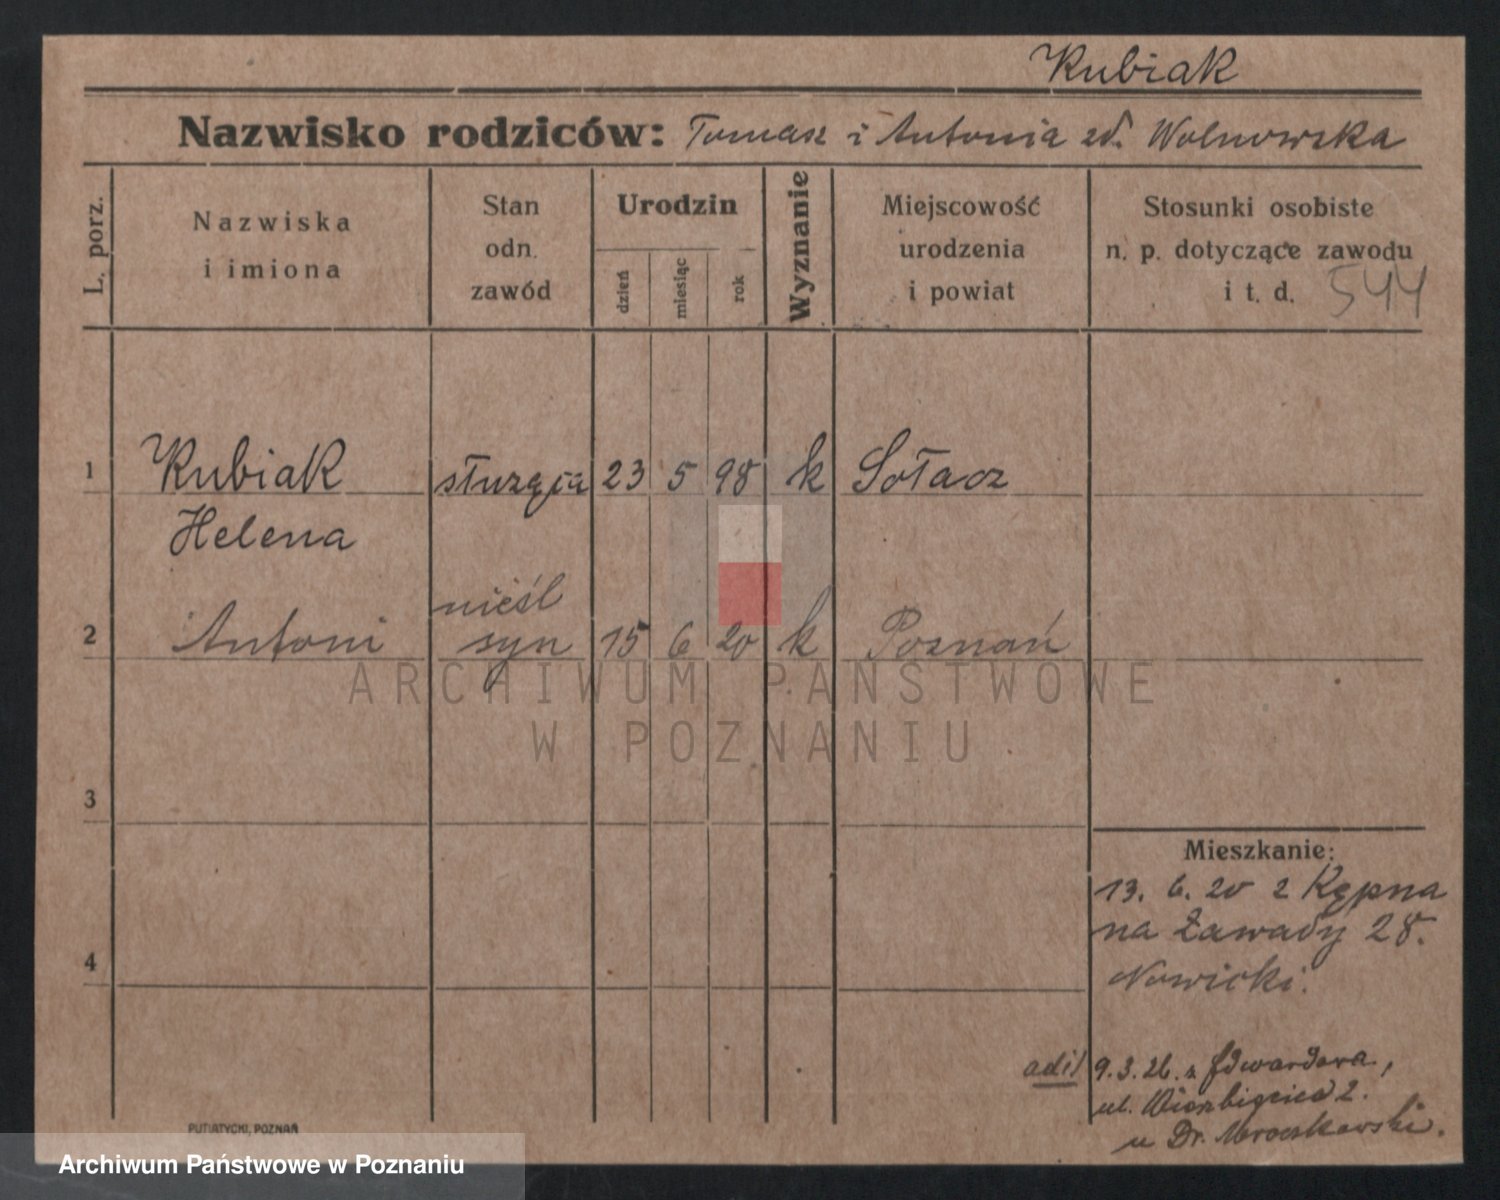 Kubiak
Nazwisko rodziców: Tomasz i Antonia zd. Wolnowska
L. porz.
Nazwiska
i imiona
Stan
odn.
zawód
Urodzin
dzień
miesiąc
rok
Wyznanie
Miejscowość
urodzenia
i powiat
Stosunki osobiste
n. p. dotyczące zawodu
i t. d. 544
1 Kubiak służąca 23 5 98 k Sołacz
Helena
nieśl
2 Antoni syn 15 6 20 k Poznań
ARCHIWUM PAŃSTWOWE
W POZNANIU
3
Mieszkanie:
13. 6. 20 z Kępna
na Zawady 28.
4
Nowicki.
ad 1/ 9. 3. 26. z Edwardowa,
ul. Wierzbięcice 2.
u Dr. Mroczkowski.
PUTIATYCKI, POZNAŃ
Archiwum Państwowe w Poznaniu